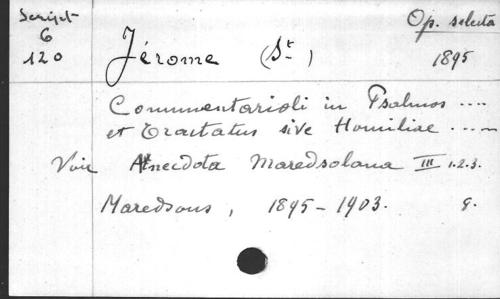 Script
6
120
Op. selecta
Jérome (St)
1895
Commentarioli in Psalmos ....
et Tractatus sive Homiliae .....
Voir Anecdota Maredsolana III 1.2.3.
Maredsous, 1895-1903.